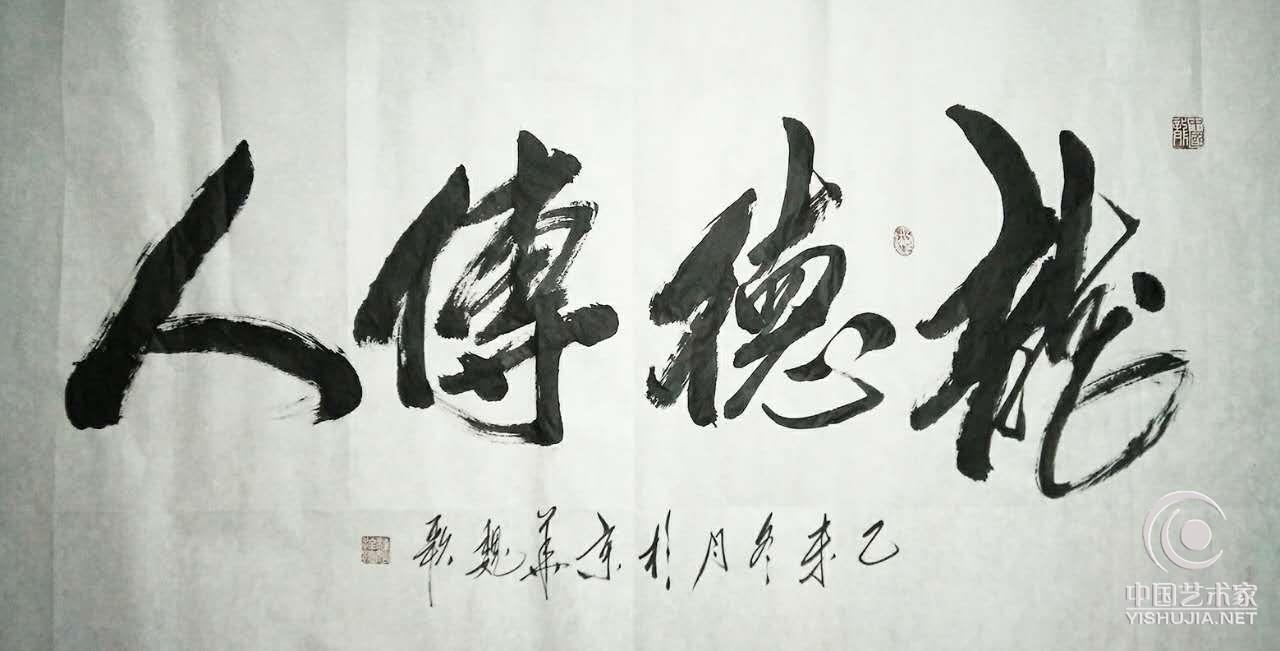 龍德傳人
中國龍
乙未冬月於京華魏歌
中国艺术家
YISHUJIA.NET